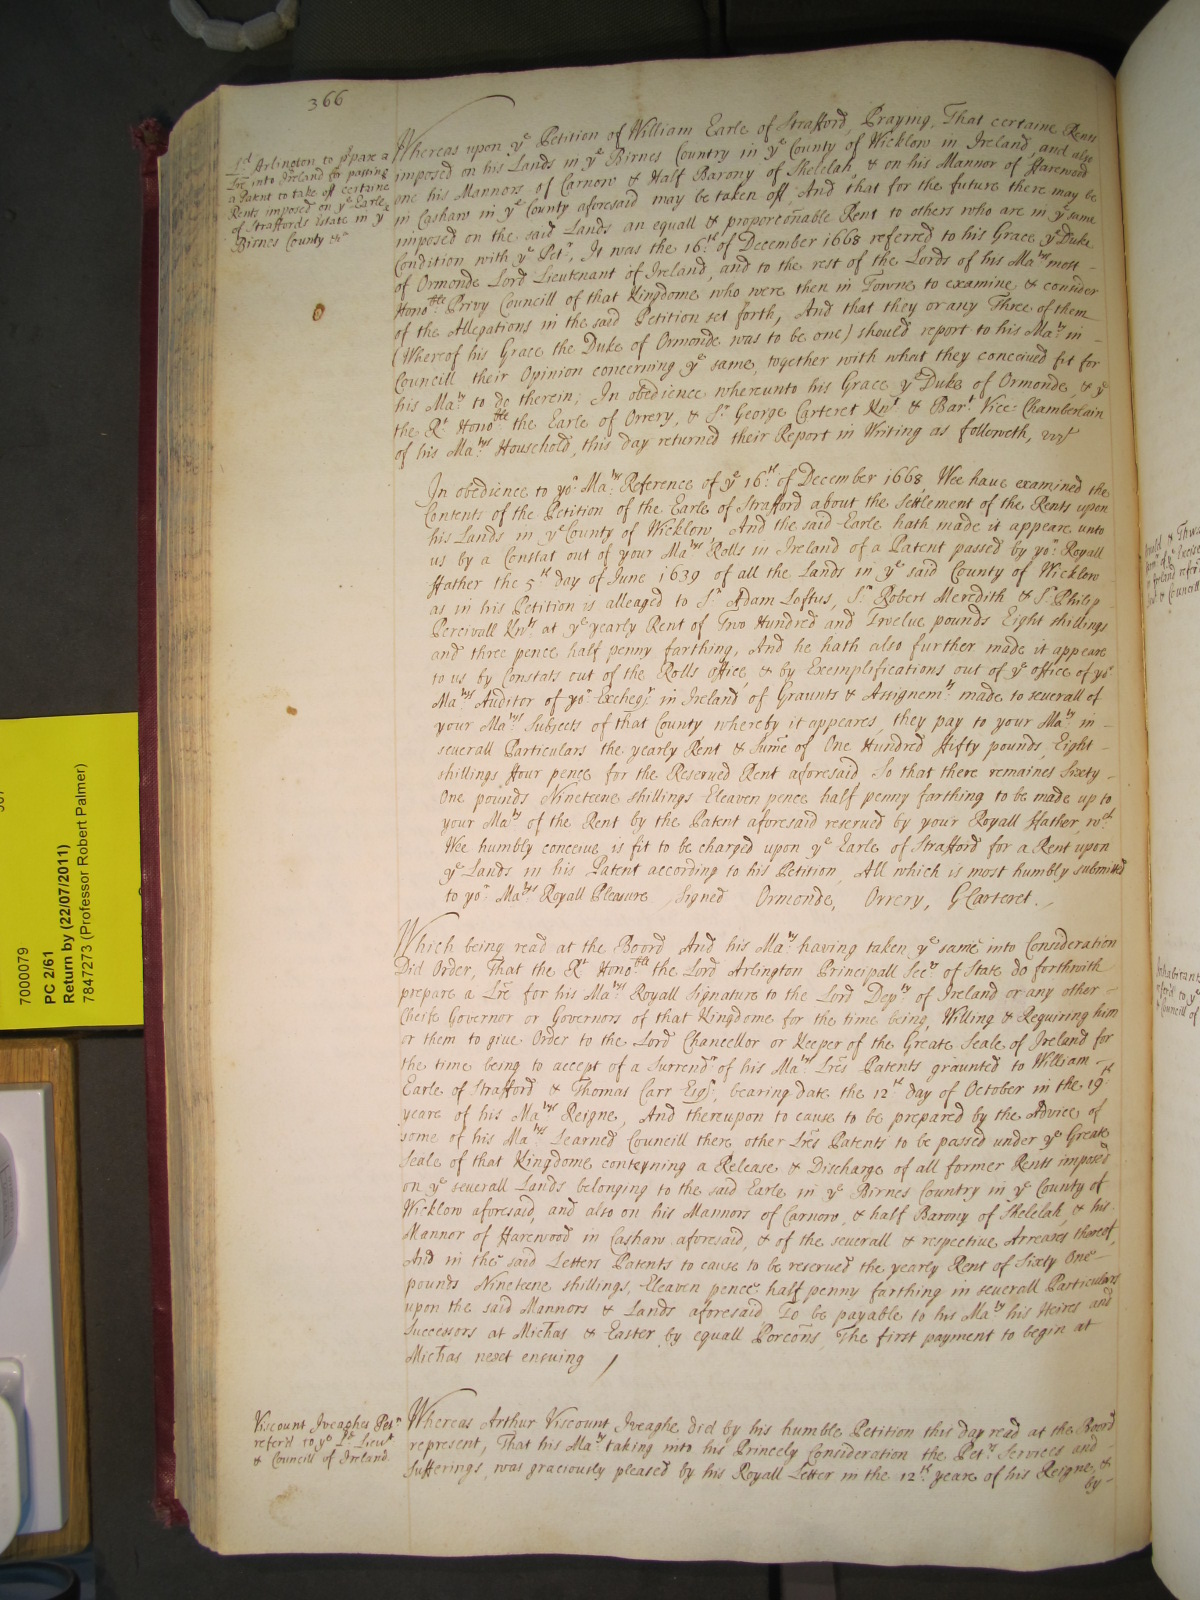 366
Ld Arlington to p̱pare a
Lre into Ireland for passing
a Patent to take off certaine
Rents imposed on ye Earle
of Straffords istate in ye
Birnes County &ca
Whereas upon ye Petition of William Earle of Strafford, Praying, That certaine Rents
imposed on his Lands in ye Birnes Country in ye County of Wicklow in Ireland, and also
one his Mannors of Carnow & Half Barony of Shelelah, & on his Mannor of Harewood
in Cashaw in ye County aforesaid may be taken off, And that for the future there may be
imposed on the said Lands an equall & proporconable Rent to others who are in ye same
Condition with ye Petr, It was the 16th of December 1668 referred to his Grace ye Duke
of Ormonde Lord Lieutenant of Ireland, and to the rest of the Lords of his Matys most
Honoble Privy Councill of that Kingdome who were then in Towne to examine & consider
of the Allegations in the said Petition set forth, And that they or any Three of them
(Whereof his Grace the Duke of Ormonde was to be one) should report to his Maty in
Councill their Opinion concerning ye same, together with what they conceived fit for
his Maty to do therein; In obedience whereunto his Grace ye Duke of Ormonde, & ye
the Rt Honoble the Earle of Orrery, & Sr George Carteret Knt & Bart Vice Chamberlain
of his Matys Household, this day returned their Report in Writing as followeth, vizt
In obedience to yor Matys Reference of ye 16th of December 1668, Wee have examined the
Contents of the Petition of the Earle of Strafford about the Settlement of the Rents upon
his Lands in ye County of Wicklow, And the said Earle hath made it appeare unto
us by a Constat out of your Matys Rolls in Ireland of a Patent passed by yor Royall
ffather the 5th day of June 1639 of all the Lands in ye said County of Wicklow
as in his Petition is alleaged to Sr Adam Loftus, Sr Robert Meredith & Sr Philip
Percivall Knts at ye yearly Rent of Two Hundred and Twelve pounds Eight shillings
and three pence half penny farthing, And he hath also further made it appeare
to us by Constats out of the Rolls office, & by Exemplifications out of ye office of yor
Matys Auditor of yor Excheqr in Ireland, of Graunts & Assignemts made to severall of
your Matys Subjects of that County whereby it appeares, they pay to your Maty in
severall Particulars the yearly Rent & Sume of One Hundred ffifty pounds, Eight
shillings ffour pence for the Reserved Rent aforesaid, So that there remaines Sixty
One pounds Nineteene shillings Eleaven pence half penny farthing to be made up to
your Maty of the Rent by the Patent aforesaid reserved by your Royall ffather wch
Wee humbly conceive is fit to be charged upon ye Earle of Strafford for a Rent upon
ye Lands in his Patent according to his Petition, All which is most humbly submitted
to yor Matys Royall Pleasure Signed Ormonde, Orrery, G Carteret.
Which being read at the Boord, And his Maty having taken ye same into Consideration
Did Order, That the Rt Honoble the Lord Arlington Principall Secry of State do forthwith
prepare a Lre for his Matys Royall Signature to the Lord Depty of Ireland or any other
Cheife Governor or Governors of that Kingdome for the time being, Willing & Requiring him
or them to give Order to the Lord Chancellor or Keeper of the Greate Seale of Ireland for
the time being to accept of a Surrendr of his Matys Lres Patents graunted to William
Earle of Strafford & Thomas Carr Esqr, bearing date the 12th day of October in the 19th
yeare of his Matys Reigne, And thereupon to cause to be prepared by the Advice of
some of his Matys Learned Councill there other Lres Patents to be passed under ye Greate
Seale of that Kingdome conteyning a Release & Discharge of all former Rents imposed
on ye severall Lands belonging to the said Earle in ye Birnes Country in ye County of
Wicklow aforesaid, and also on his Mannors of Carnow, & half Barony of Shelelah, & his
Mannor of Harewood in Cashaw aforesaid, & of the severall & respective Arreares thereof,
And in the said Letters Patents to cause to be reserved the yearly Rent of Sixty One
pounds Nineteene shillings, Eleaven pence half penny farthing in severall Particulars
upon the said Mannors & Lands aforesaid To be payable to his Maty his Heires and
Successors at Michas & Easter by equall Porcons, The first payment to begin at
Michas next ensuing
Viscount Iveaghes Petn
refer'd to ye Ld Lieut
& Councill of Ireland.
Whereas Arthur Viscount Iveaghe did by his humble Petition this day read at the Boord
represent, That his Maty taking into his Princely Consideration the Petrs Services and
Sufferings, was graciously pleased by his Royall Letter in the 12th yeare of his Reigne, &
by
7000079
PC 2/61
Return by (22/07/2011)
7847273 (Professor Robert Palmer)